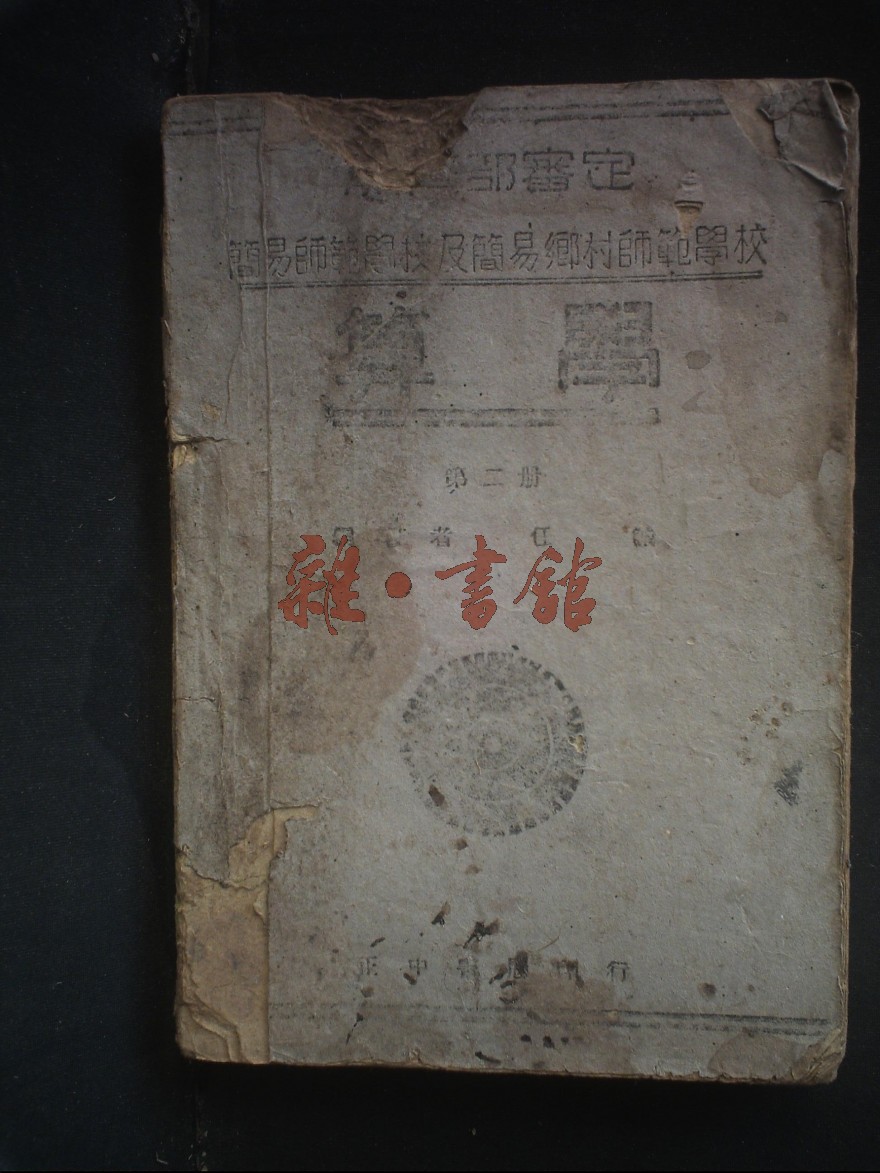 部審定
簡易師範學校及簡易鄉村師範學校
算學
第二冊
者 任
雜·書館
正中 行